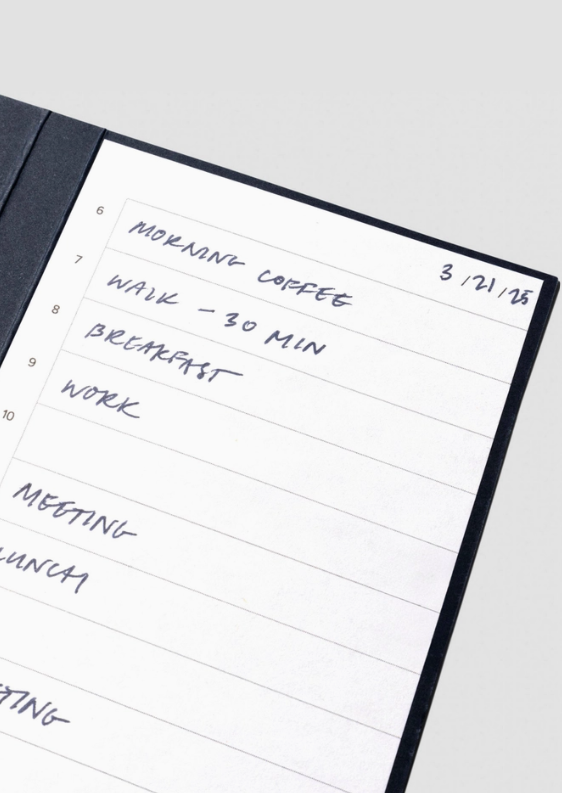 3/21/25
6 MORNING COFFEE
7 WALK - 30 MIN
8 BREAKFAST
9 WORK
10
MEETING
LUNCH